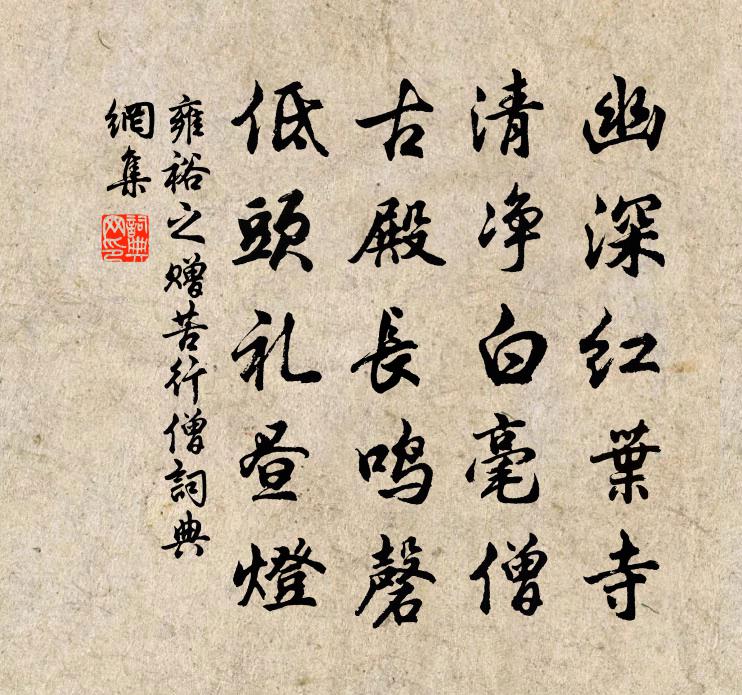 幽深紅葉寺
清净白毫僧
古殿長鳴磬
低頭礼昼燈
雍裕之贈苦行僧詞典
網集
詞典
网印